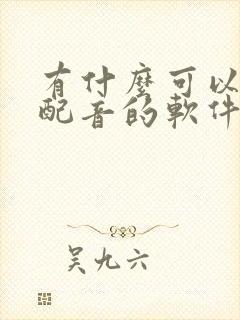 有什麼可以
配音的軟件
吴九六